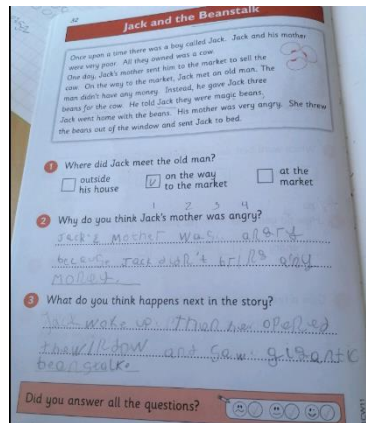 32
Jack and the Beanstalk
Once upon a time there was a boy called Jack. Jack and his mother
were very poor. All they owned was a cow.
One day, Jack's mother sent him to the market to sell the
cow. On the way to the market, Jack met an old man. The
man didn't have any money. Instead, he gave Jack three
beans for the cow. He told Jack they were magic beans.
Jack went home with the beans. His mother was very angry. She threw
the beans out of the window and sent Jack to bed.
1 Where did Jack meet the old man?
outside his house
on the way to the market
at the market
1 2 3 4
2 Why do you think Jack's mother was angry?
Jack's Mother was angry
because Jack didn't bring any
money.
3 What do you think happens next in the story?
Jack woke up then opened
the window and saw gigantic
beanstalke
Did you answer all the questions?